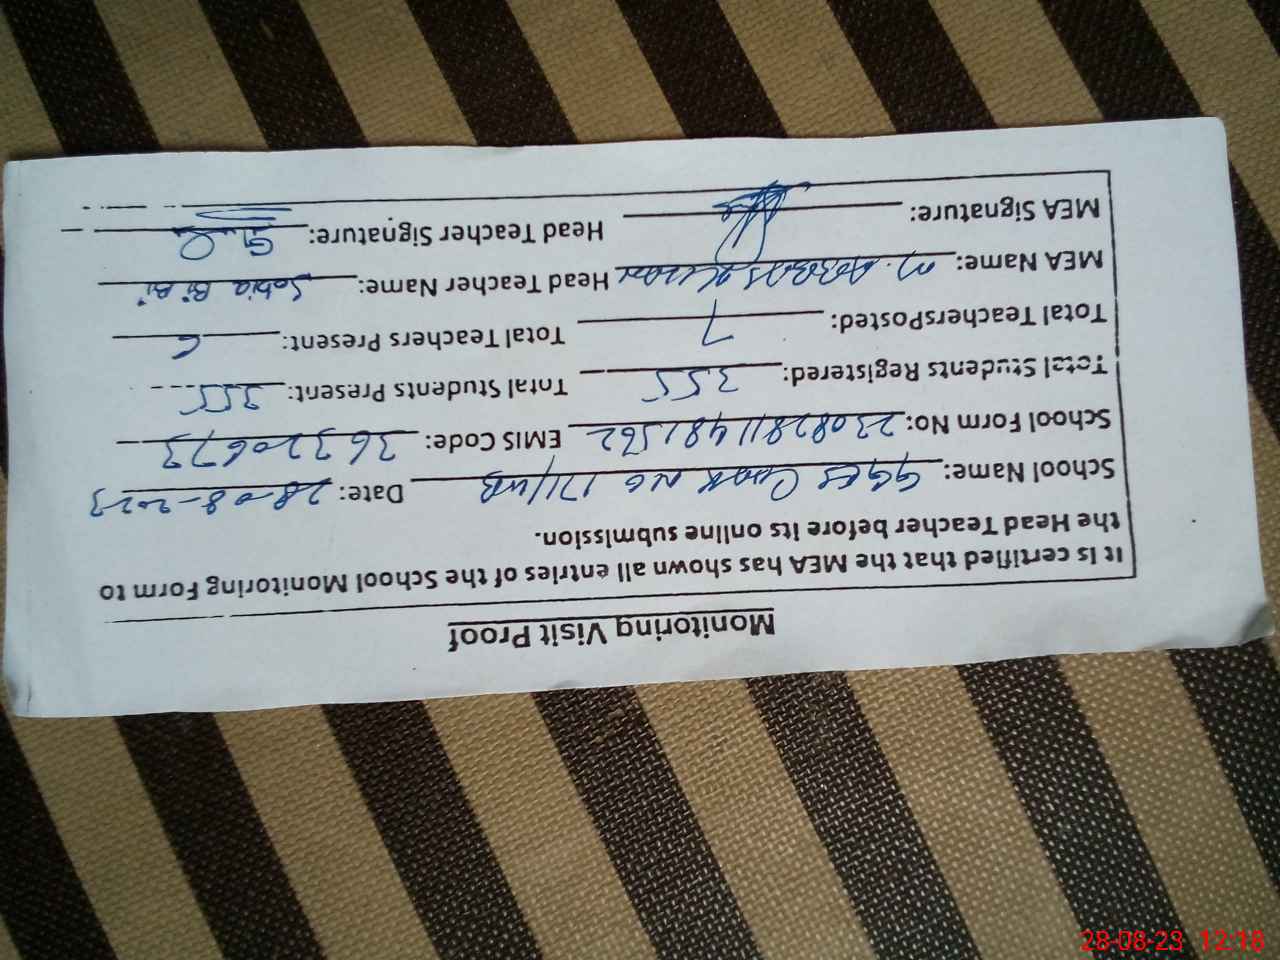 Monitoring Visit Proof
It is certified that the MEA has shown all entries of the School Monitoring Form to
the Head Teacher before its online submission.
School Name: GGES Chak No 171/WB Date: 28-08-2023
School Form No: 230828114815562 EMIS Code: 36320673
Total Students Registered: 355 Total Students Present: 355
Total TeachersPosted: 7 Total Teachers Present: 6
MEA Name: M. Abbas Head Teacher Name: Sobia Bi Bi
MEA Signature: Head Teacher Signature:
28-08-23 12:18